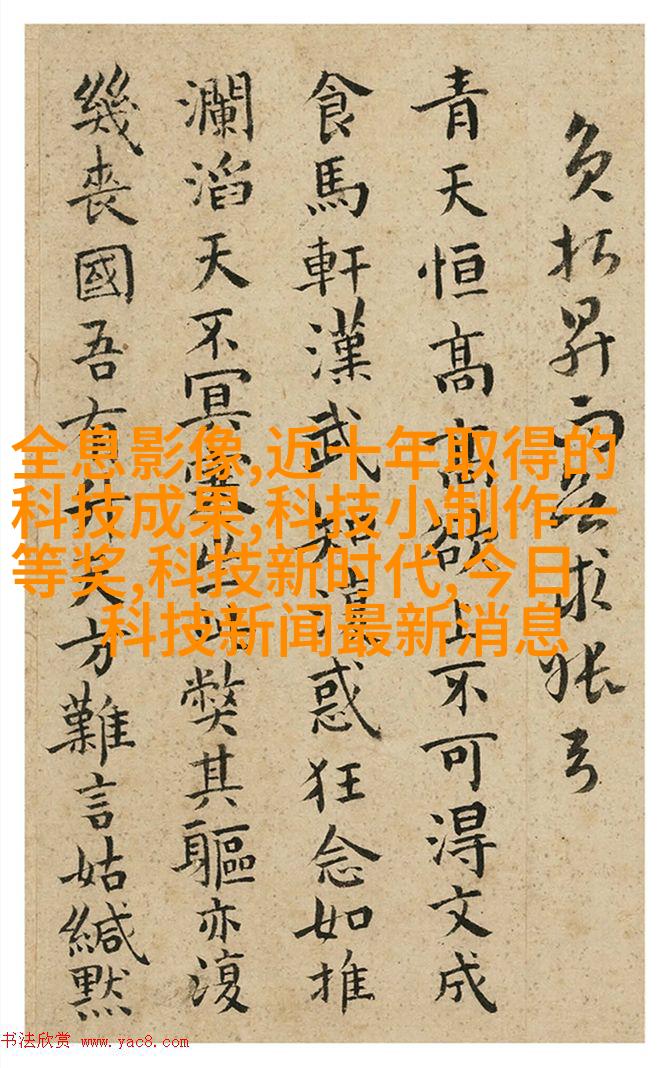 負昇而求
青天恒高高欲上不可得文成
食馬軒漢武知惑狂念如推
瀾滔天不冥弊其軀亦復
幾喪國吾有方難言姑緘默
全息影像,近十年取得的
科技成果,科技小制作一
等奖,科技新时代,今日
科技新闻最新消息
书法欣赏 www.yac8.com